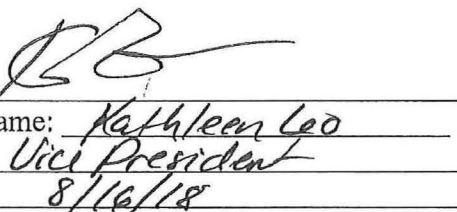 ame: Kathleen Leo
Vice President
8/16/18